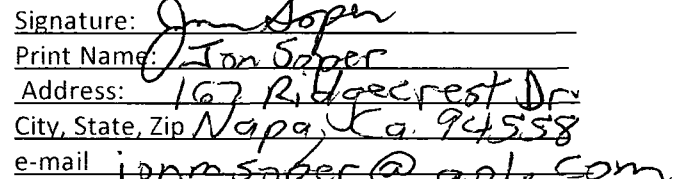 Signature: Jon Soper
Print Name: Jon Soper
Address: 167 Ridgecrest Dr
City, State, Zip Napa, Ca. 94558
e-mail jonmsoper@aol.com